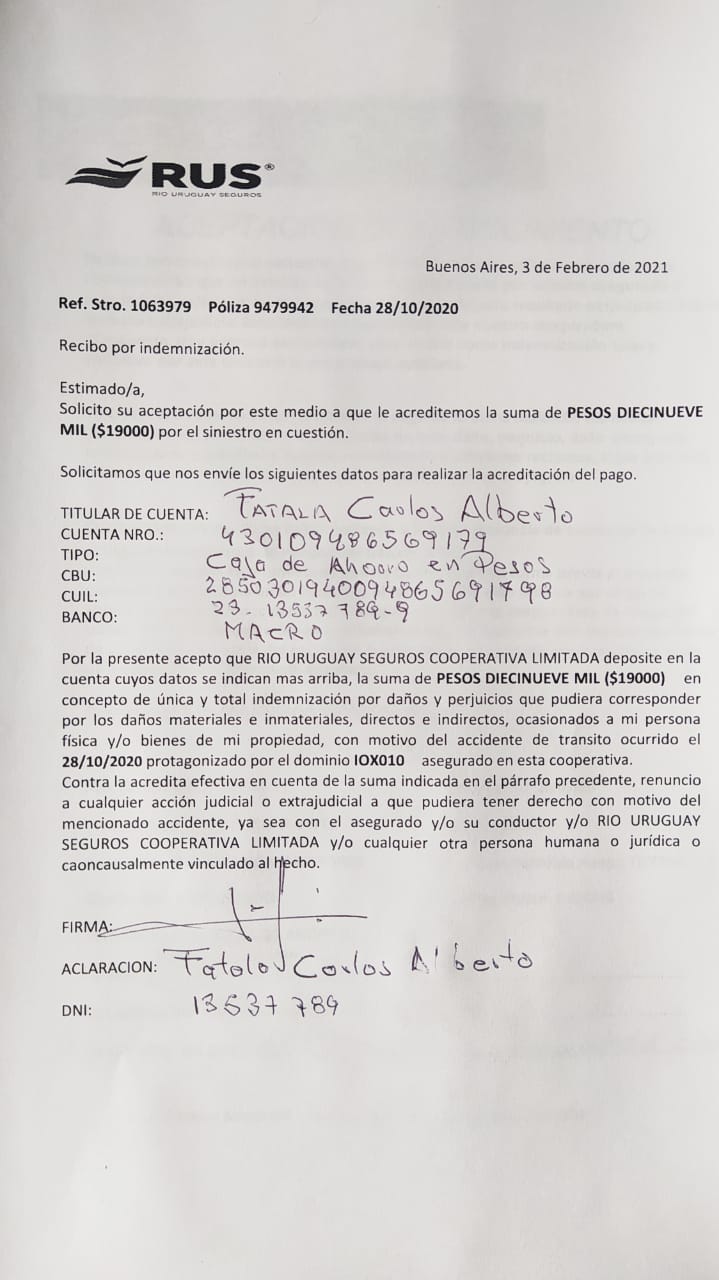 RUS®
RIO URUGUAY SEGUROS
Buenos Aires, 3 de Febrero de 2021
Ref. Stro. 1063979 Póliza 9479942 Fecha 28/10/2020
Recibo por indemnización.
Estimado/a,
Solicito su aceptación por este medio a que le acreditemos la suma de PESOS DIECINUEVE
MIL ($19000) por el siniestro en cuestión.
Solicitamos que nos envíe los siguientes datos para realizar la acreditación del pago.
TITULAR DE CUENTA: FATALA Carlos Alberto
CUENTA NRO.: 430109486569179
TIPO: Caja de Ahorro en Pesos
CBU: 2850301940094865691798
CUIL: 23-13537789-9
BANCO: MACRO
Por la presente acepto que RIO URUGUAY SEGUROS COOPERATIVA LIMITADA deposite en la
cuenta cuyos datos se indican mas arriba, la suma de PESOS DIECINUEVE MIL ($19000) en
concepto de única y total indemnización por daños y perjuicios que pudiera corresponder
por los daños materiales e inmateriales, directos e indirectos, ocasionados a mi persona
física y/o bienes de mi propiedad, con motivo del accidente de transito ocurrido el
28/10/2020 protagonizado por el dominio IOX010 asegurado en esta cooperativa.
Contra la acredita efectiva en cuenta de la suma indicada en el párrafo precedente, renuncio
a cualquier acción judicial o extrajudicial a que pudiera tener derecho con motivo del
mencionado accidente, ya sea con el asegurado y/o su conductor y/o RIO URUGUAY
SEGUROS COOPERATIVA LIMITADA y/o cualquier otra persona humana o jurídica o
caoncausalmente vinculado al hecho.
FIRMA:
ACLARACION: Fatala Carlos Alberto
DNI: 13537789